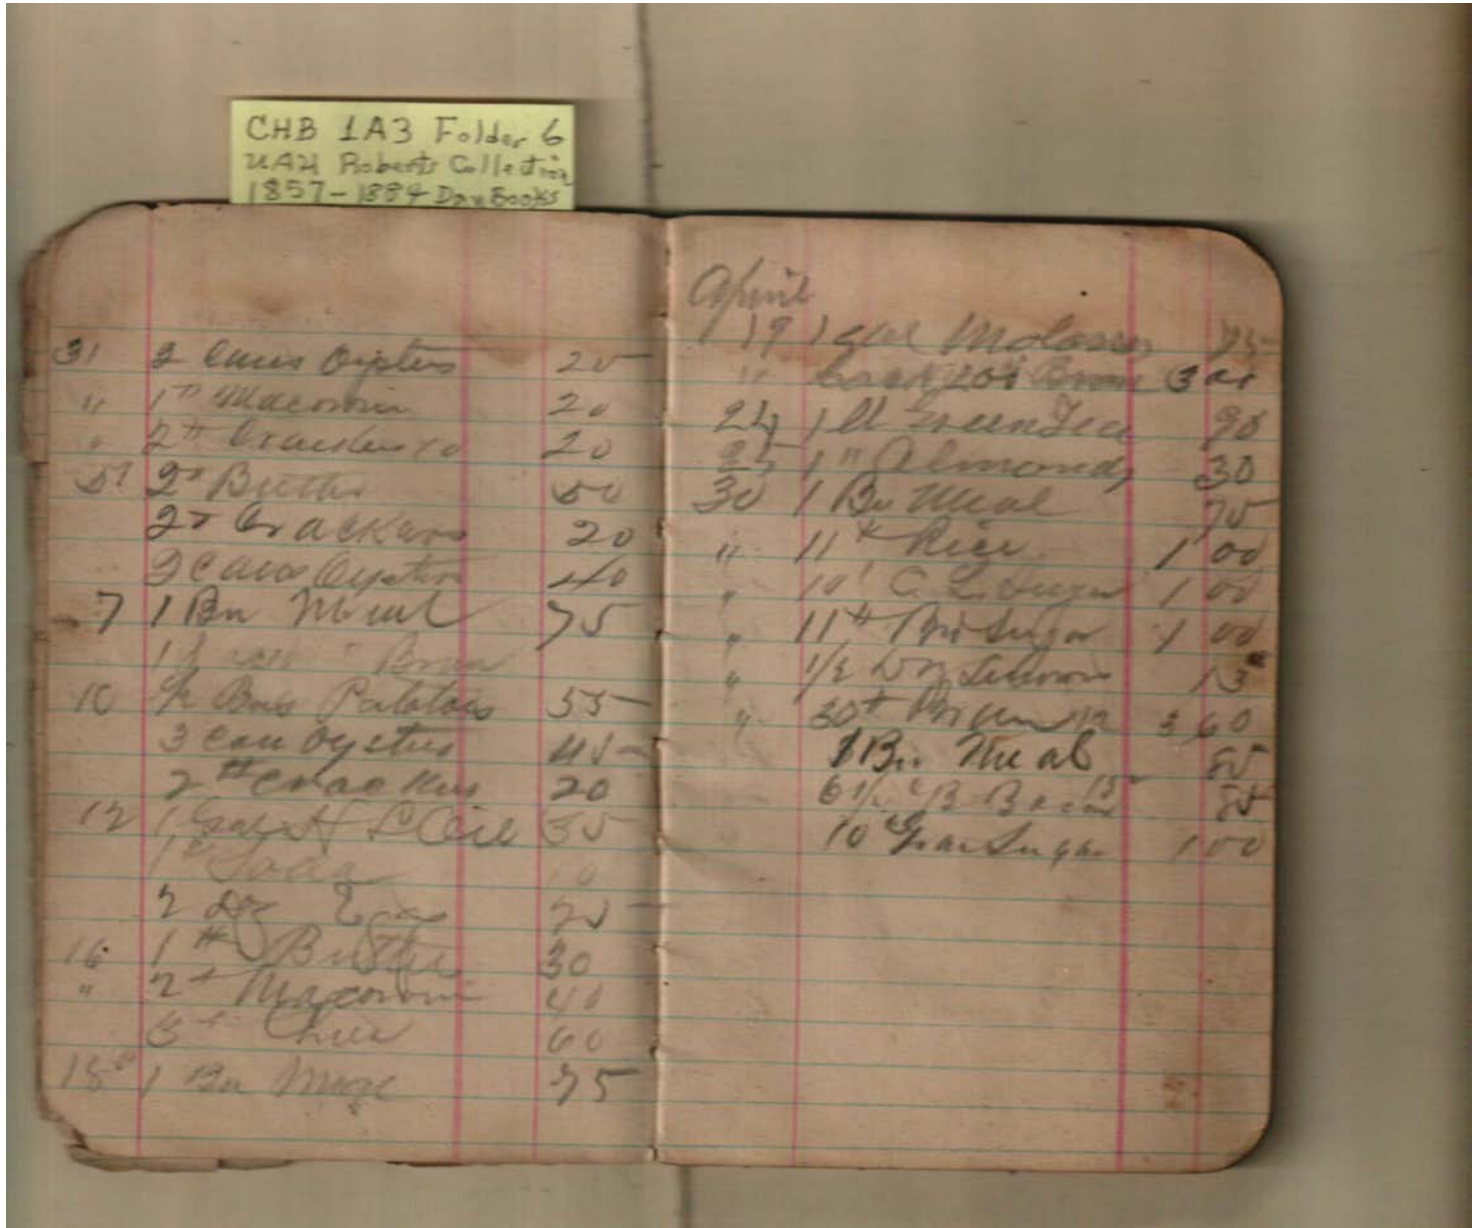 CHB 1A3 Folder 6
UAH Roberts Collection
1857-1884 Day Books
31 2 Cans Oysters 25
" 1 # Macoroni 20
" 2 # Crackers 10 20
2 # Butter 50
2 # Crackers 20
2 Cans Oysters 40
7 1 Bu Meal 75
1 Bran
10 Bus Patatoes 55
3 Can Oysters 45
2 # Crackers 20
12 1 Gal Oil 35
1 # Soda 10
2 Doz Eggs 25
16 1 # Butter 30
" 2 # Macoroni 40
60
18 1 Bu Meal 75
April
19 1 Gal Molasses 75
" Bran
24 1 lb Green Tea 90
25 1 " Almonds 30
30 1 Bu Meal 75
" 11 # Rice 1 00
" 10 Sugar 1 00
" 11 # Sugar 1 00
" 1/2 Doz 13
" 30 # 12 3 60
1 Bu Meal 85
6 1/2 B Bacon
10 # Gran Sugar 1 00